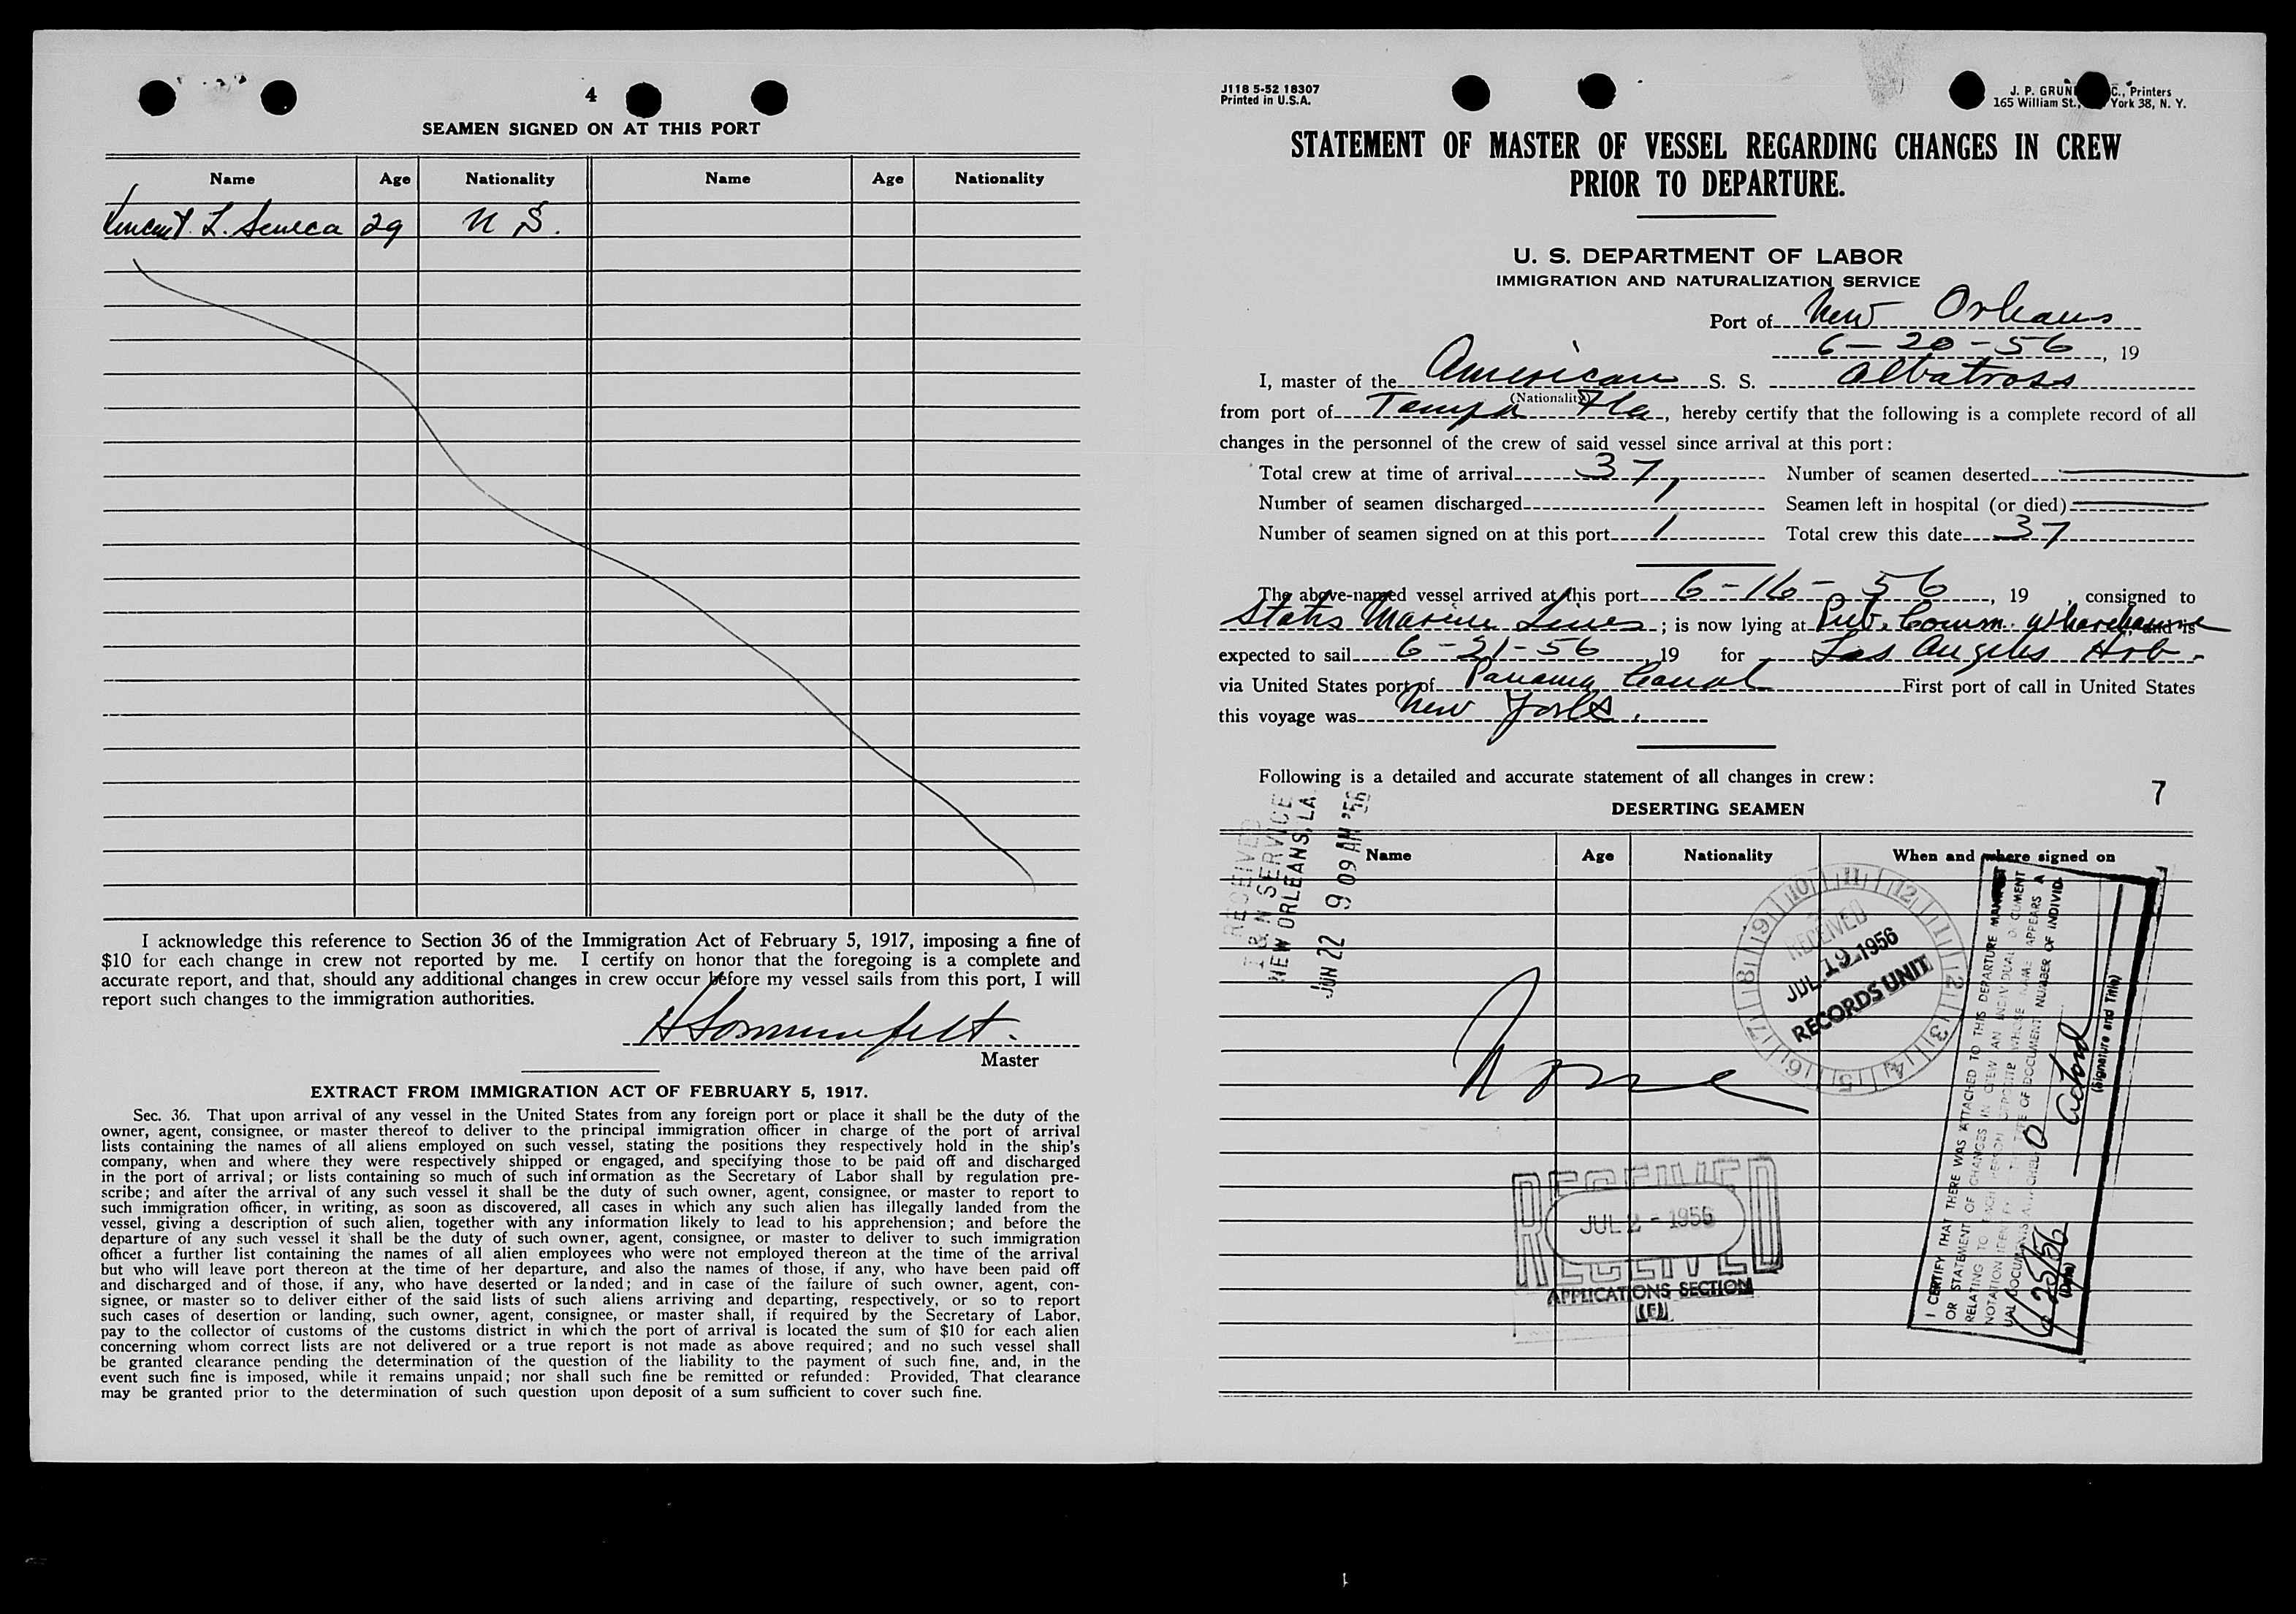 4
SEAMEN SIGNED ON AT THIS PORT
Name Age Nationality Name Age Nationality
Vincent L. Seneca 29 U S.
I acknowledge this reference to Section 36 of the Immigration Act of February 5, 1917, imposing a fine of
$10 for each change in crew not reported by me. I certify on honor that the foregoing is a complete and
accurate report, and that, should any additional changes in crew occur before my vessel sails from this port, I will
report such changes to the immigration authorities.
H Sommerfelt.
Master
EXTRACT FROM IMMIGRATION ACT OF FEBRUARY 5, 1917.
Sec. 36. That upon arrival of any vessel in the United States from any foreign port or place it shall be the duty of the
owner, agent, consignee, or master thereof to deliver to the principal immigration officer in charge of the port of arrival
lists containing the names of all aliens employed on such vessel, stating the positions they respectively hold in the ship's
company, when and where they were respectively shipped or engaged, and specifying those to be paid off and discharged
in the port of arrival; or lists containing so much of such information as the Secretary of Labor shall by regulation pre-
scribe; and after the arrival of any such vessel it shall be the duty of such owner, agent, consignee, or master to report to
such immigration officer, in writing, as soon as discovered, all cases in which any such alien has illegally landed from the
vessel, giving a description of such alien, together with any information likely to lead to his apprehension; and before the
departure of any such vessel it shall be the duty of such owner, agent, consignee, or master to deliver to such immigration
officer a further list containing the names of all alien employees who were not employed thereon at the time of the arrival
but who will leave port thereon at the time of her departure, and also the names of those, if any, who have been paid off
and discharged and of those, if any, who have deserted or landed; and in case of the failure of such owner, agent, con-
signee, or master so to deliver either of the said lists of such aliens arriving and departing, respectively, or so to report
such cases of desertion or landing, such owner, agent, consignee, or master shall, if required by the Secretary of Labor,
pay to the collector of customs of the customs district in which the port of arrival is located the sum of $10 for each alien
concerning whom correct lists are not delivered or a true report is not made as above required; and no such vessel shall
be granted clearance pending the determination of the question of the liability to the payment of such fine, and, in the
event such fine is imposed, while it remains unpaid; nor shall such fine be remitted or refunded: Provided, That clearance
may be granted prior to the determination of such question upon deposit of a sum sufficient to cover such fine.
J118 5-52 18307
Printed in U.S.A.
J. P. GRUN C., Printers
165 William St., York 38, N. Y.
STATEMENT OF MASTER OF VESSEL REGARDING CHANGES IN CREW
PRIOR TO DEPARTURE.
U. S. DEPARTMENT OF LABOR
IMMIGRATION AND NATURALIZATION SERVICE
Port of New Orleans
6-20-56, 19
I, master of the American S. S. Albatross
(Nationality)
from port of Tampa Fla, hereby certify that the following is a complete record of all
changes in the personnel of the crew of said vessel since arrival at this port:
Total crew at time of arrival 37 Number of seamen deserted
Number of seamen discharged 1 Seamen left in hospital (or died)
Number of seamen signed on at this port 1 Total crew this date 37
The above-named vessel arrived at this port 6-16-56, 19 , consigned to
States Marine Lines; is now lying at Pub. Comm. Wharehouse, and is
expected to sail 6-21-56, 19 for Los Angeles Hrb.
via United States port of Panama Canal First port of call in United States
this voyage was New York.
Following is a detailed and accurate statement of all changes in crew:
7
DESERTING SEAMEN
Name Age Nationality When and where signed on
None
RECEIVED
I & N SERVICE
NEW ORLEANS, LA.
JUN 22 9 09 AM '56
RECEIVED
JUL 19 1956
RECORDS UNIT
10 11 12 1 2 3 4 5 6 7 8 9
RECEIVED
JUL 2 - 1956
RECEIVED
APPLICATIONS SECTION
I CERTIFY THAT THERE WAS ATTACHED TO THIS DEPARTURE MANIFEST
OR STATEMENT OF CHANGES IN CREW AN INDIVIDUAL DOCUMENT
RELATING TO EACH PERSON OPPOSITE WHOSE NAME APPEARS A
NOTATION OF DOCUMENT NUMBER OF INDIVID-
UAL DOCUMENTS ATTACHED 0
6/25/56
(Date)
(Signature and Title)